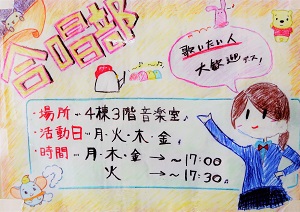 合唱部
歌いたい人
大歓迎デス!
・場所…4棟3階音楽室♪
・活動日…月・火・木・金♩
・時間…月・木・金→〜17:00
火→〜17:30♫